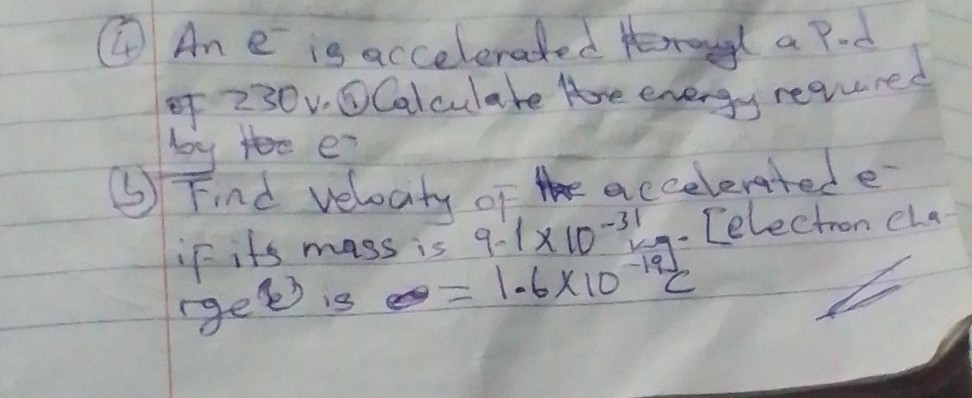 ④ An e⁻ is accelerated through a P.d
of 230v. ① Calculate the energy required
by the e⁻
⑤ Find velocity of the accelerated e⁻
if its mass is 9.1×10⁻³¹ kg. [electron cha-
rge(e) is = 1.6×10⁻¹⁹]C